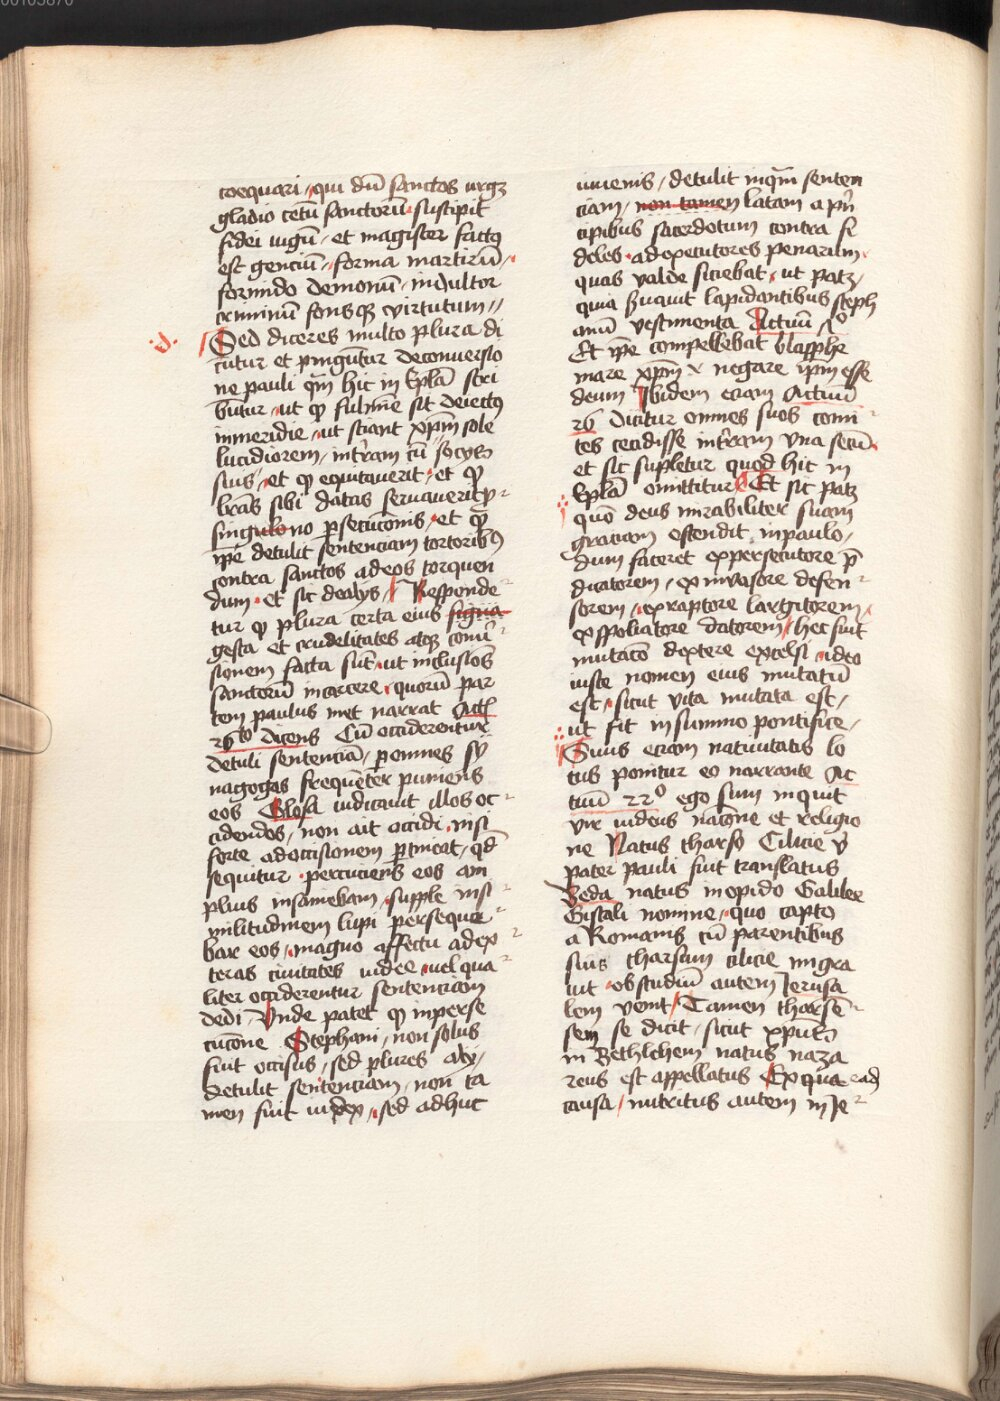 coequari, qui dū sanctos urgz
gladio cetū sanctorū suscipit
fidei iugū, et magister factꝯ
est genciū, forma martirū,
formido demonū, indultor
criminū fonsqꝫ virtutum //
Sed diceres multo plura di
cūtur et pīngūtur deconuersio
ne pauli qm̄ hic in Epl̄a scri
būtur, ut ꝙ fulmīe sit deiectꝯ
inmeridie, ut sciant xp̄m sole
lucidiorem, int̄ram cū socijs
suis, et ꝙ equitauerit, et ꝙ
sibi datas seruauerit
no ꝑsecucōnis, et ꝙ
ip̄e detulit sentenciam tortoribꝯ
contra sanctos adeos torquen
dum, et sic dealijs, Responde
tur ꝙ plura certa eius signa
gesta et crudelitates atqꝫ
sionem facta sūt, ut inclusiōēs
sanctorū incarcere, quorū par
tem paulus met narrat Actꝭ
26to dicens Cū occiderentur
detuli sentenciā, ꝑomnes sy
nagogas frequēter puniens
eos Glosa iudicauit illos oc
cidendos, non ait occidi, nisi
forte adoccisionem ꝑtineat, qd̄
sequitur, percuciens eos am
plius insaniebam, supple insi
militudinem lupi persequē
bar eos, magno affectu adex
teras ciuitates iudee, uel qua
liter occiderentur sentenciam
dedi, Vnde patet ꝙ inperse
cucōne Stephani, non solus
fuit occisus, sed plures alij,
detulit sentenciam, non ta
men fuit iudex, sed adhuc
.S.
iuuenis, detulit inquam senten
ciam, non tamen latam a prin
cipibus sacerdotum contra fi
deles, adexecutores penarum,
quas valde siciebat, ut patz,
quia seruauit lapidantibus steph
anū vestimenta Actuū
Et ip̄e compellebat blasphe
mare xp̄m et negare ip̄m esse
deum Ibidem eciam Actuū
26 dicitur omnes suos comi
tes cecidisse int̄ram vna secū
et sic supletur quod hic in
Epl̄a omittitur Et sic patz
quō deus mirabiliter suam
graciam ostendit inpaulo,
dum faceret expersecutore p̄
dicatorem, exinuasore defen
sorem, exraptore largitorem,
exspoliatore datorem, hec fuit
mutacō dextere excelsi, ideo
iuste nomen eius mutatū
est, sicut vita mutata est,
ut fit in summo pontifice,
Suus eciam natiuitatis lo
cus ponitur eo narrante Ac
tuū 22o ego sum inquit
vir iudeus nacōne et religio
ne Natus tharso Cilicie
pater Pauli fuit translatus
Beda natus inopido Galilee
Gistali nomine, quo capto
a Romanis cū parentibus
suis tharsum cilicie migra
uit, obstudiū autem Jerusa
lem venit, Tamen tharsē
sem se dicit, sicut xp̄us
in Bethlehem natus naza
reus est appellatus Exqua ead
causa, nutritus autem inJe